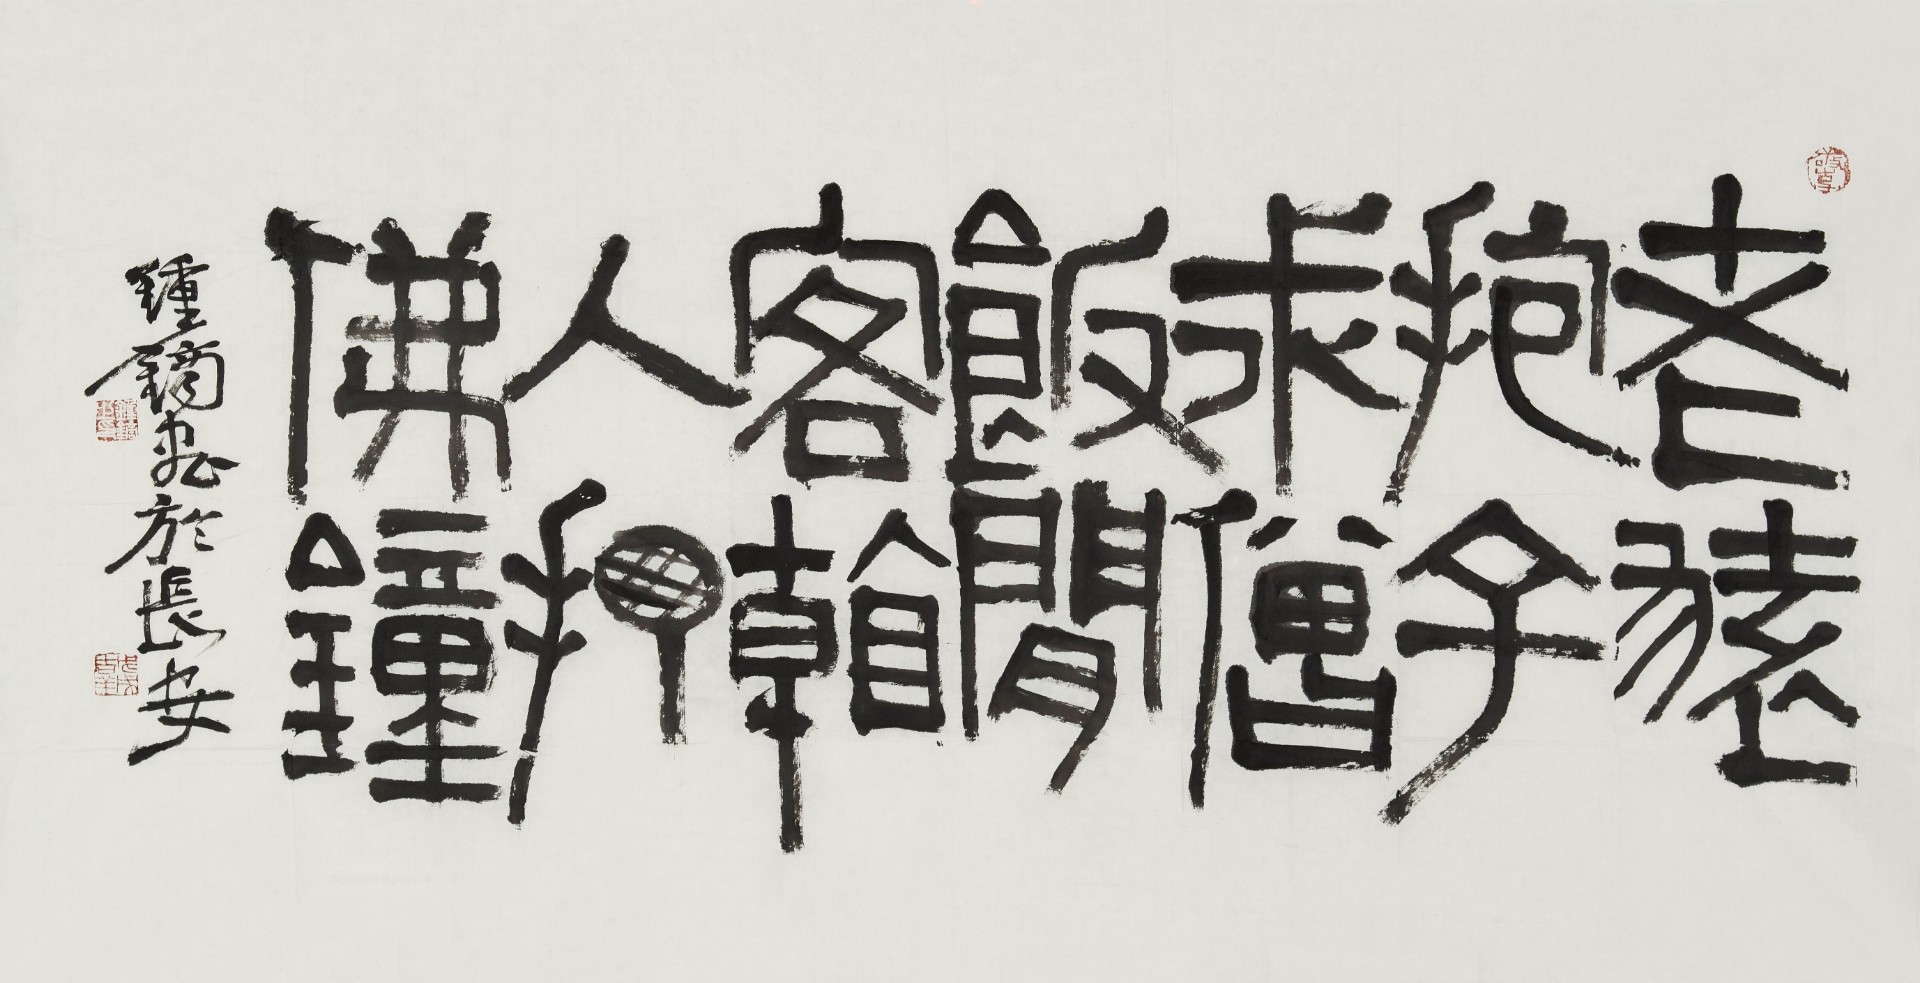 老猿
抱子
求僧
飯閒
客朝
人押
佛鐘
鍾鏑書於長安